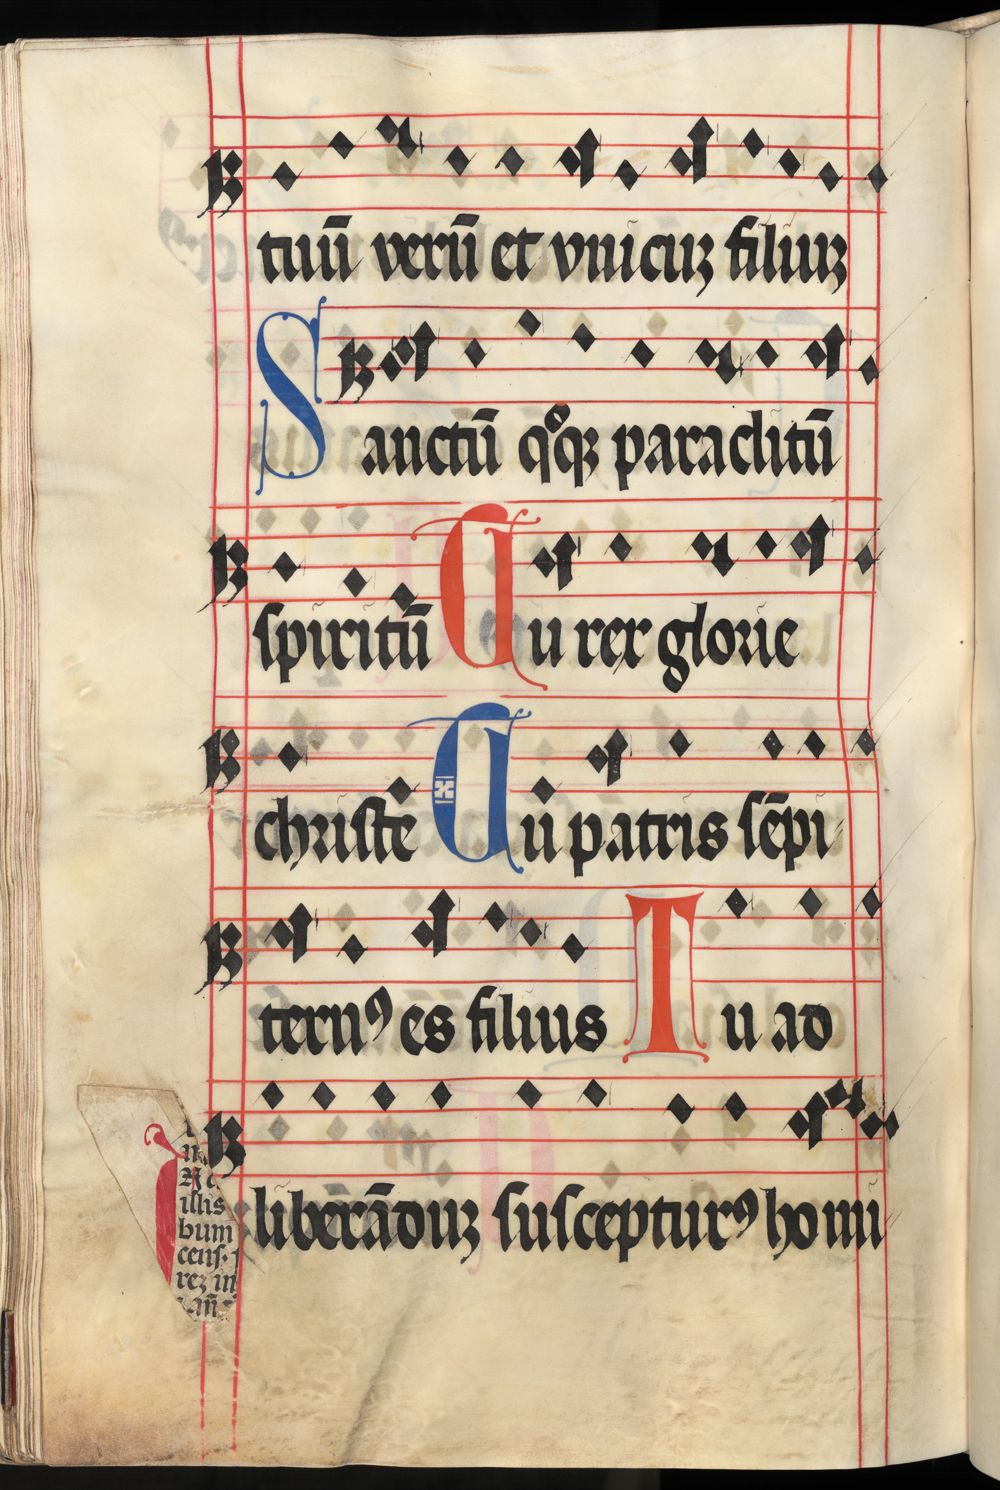 tuū verū et vnicuꝫ filiuꝫ
Sanctū qͦqꝫ paraclitū
spiritū Tu rex glorie
christe Tū patris sēpi
ternꝰ es filius Tu ad
liberāduꝫ suscepturꝰ homi
illis
bum
cens.
reꝫ in